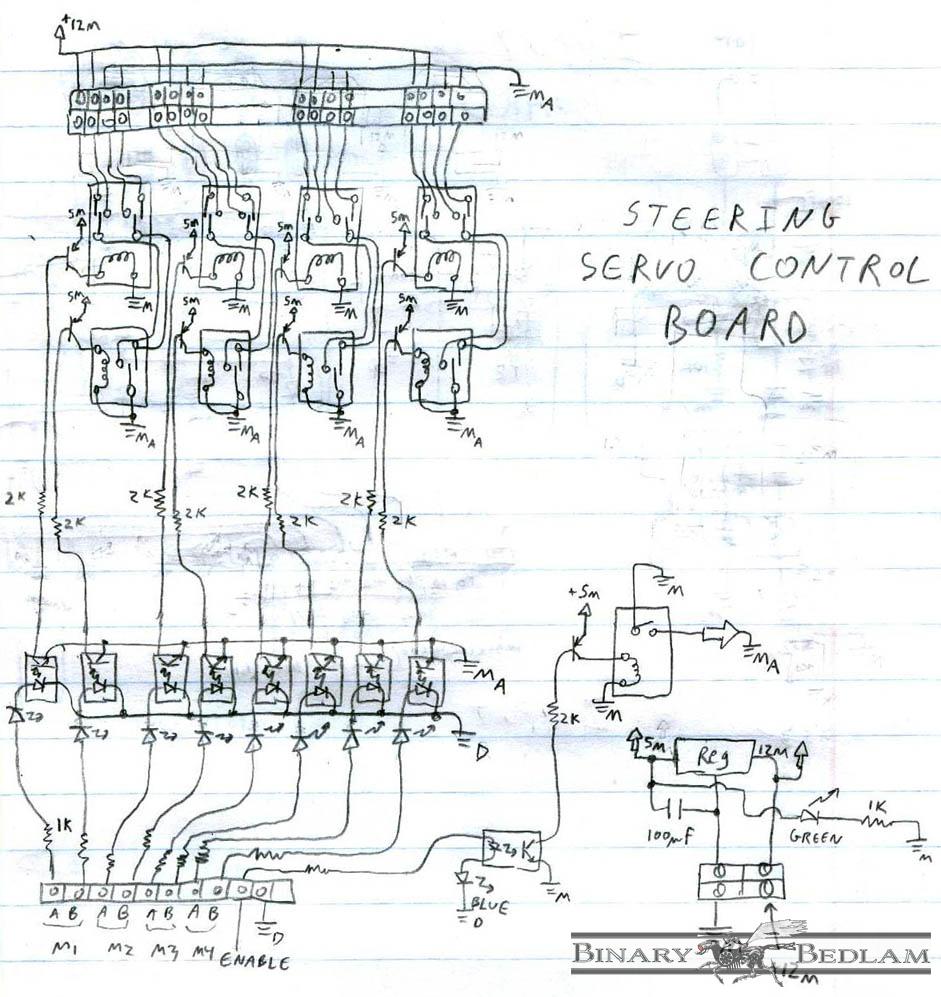 +12M
M A
STEERING
SERVO CONTROL
BOARD
5M 5M 5M 5M
M M M M
5M 5M 5M 5M
M A M A M A M A
2K 2K 2K 2K
2K 2K 2K 2K
+5M
M
M A
M A
M
2K
D
5M Reg 12M
1K
100µF
GREEN
M
1K
M
BLUE
D
A B A B A B A B
D
M1 M2 M3 M4 ENABLE
+12M
BINARY BEDLAM